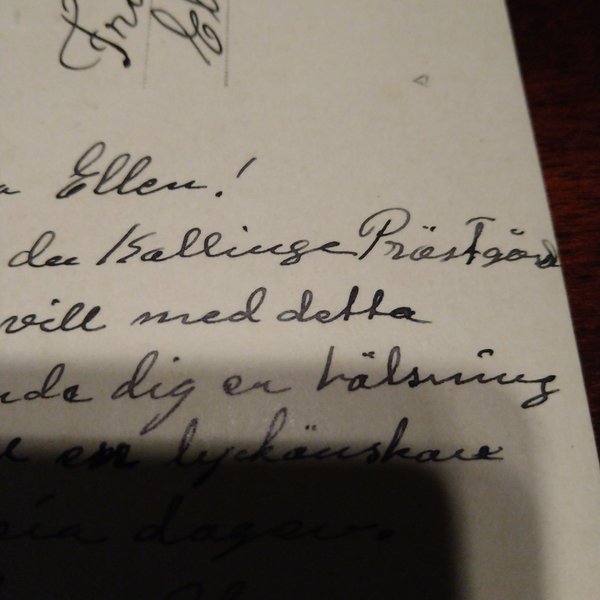 Ellen!
du Kallinge Prästgård
vill med detta
dig en hälsning
en lyckönskan
dagen.